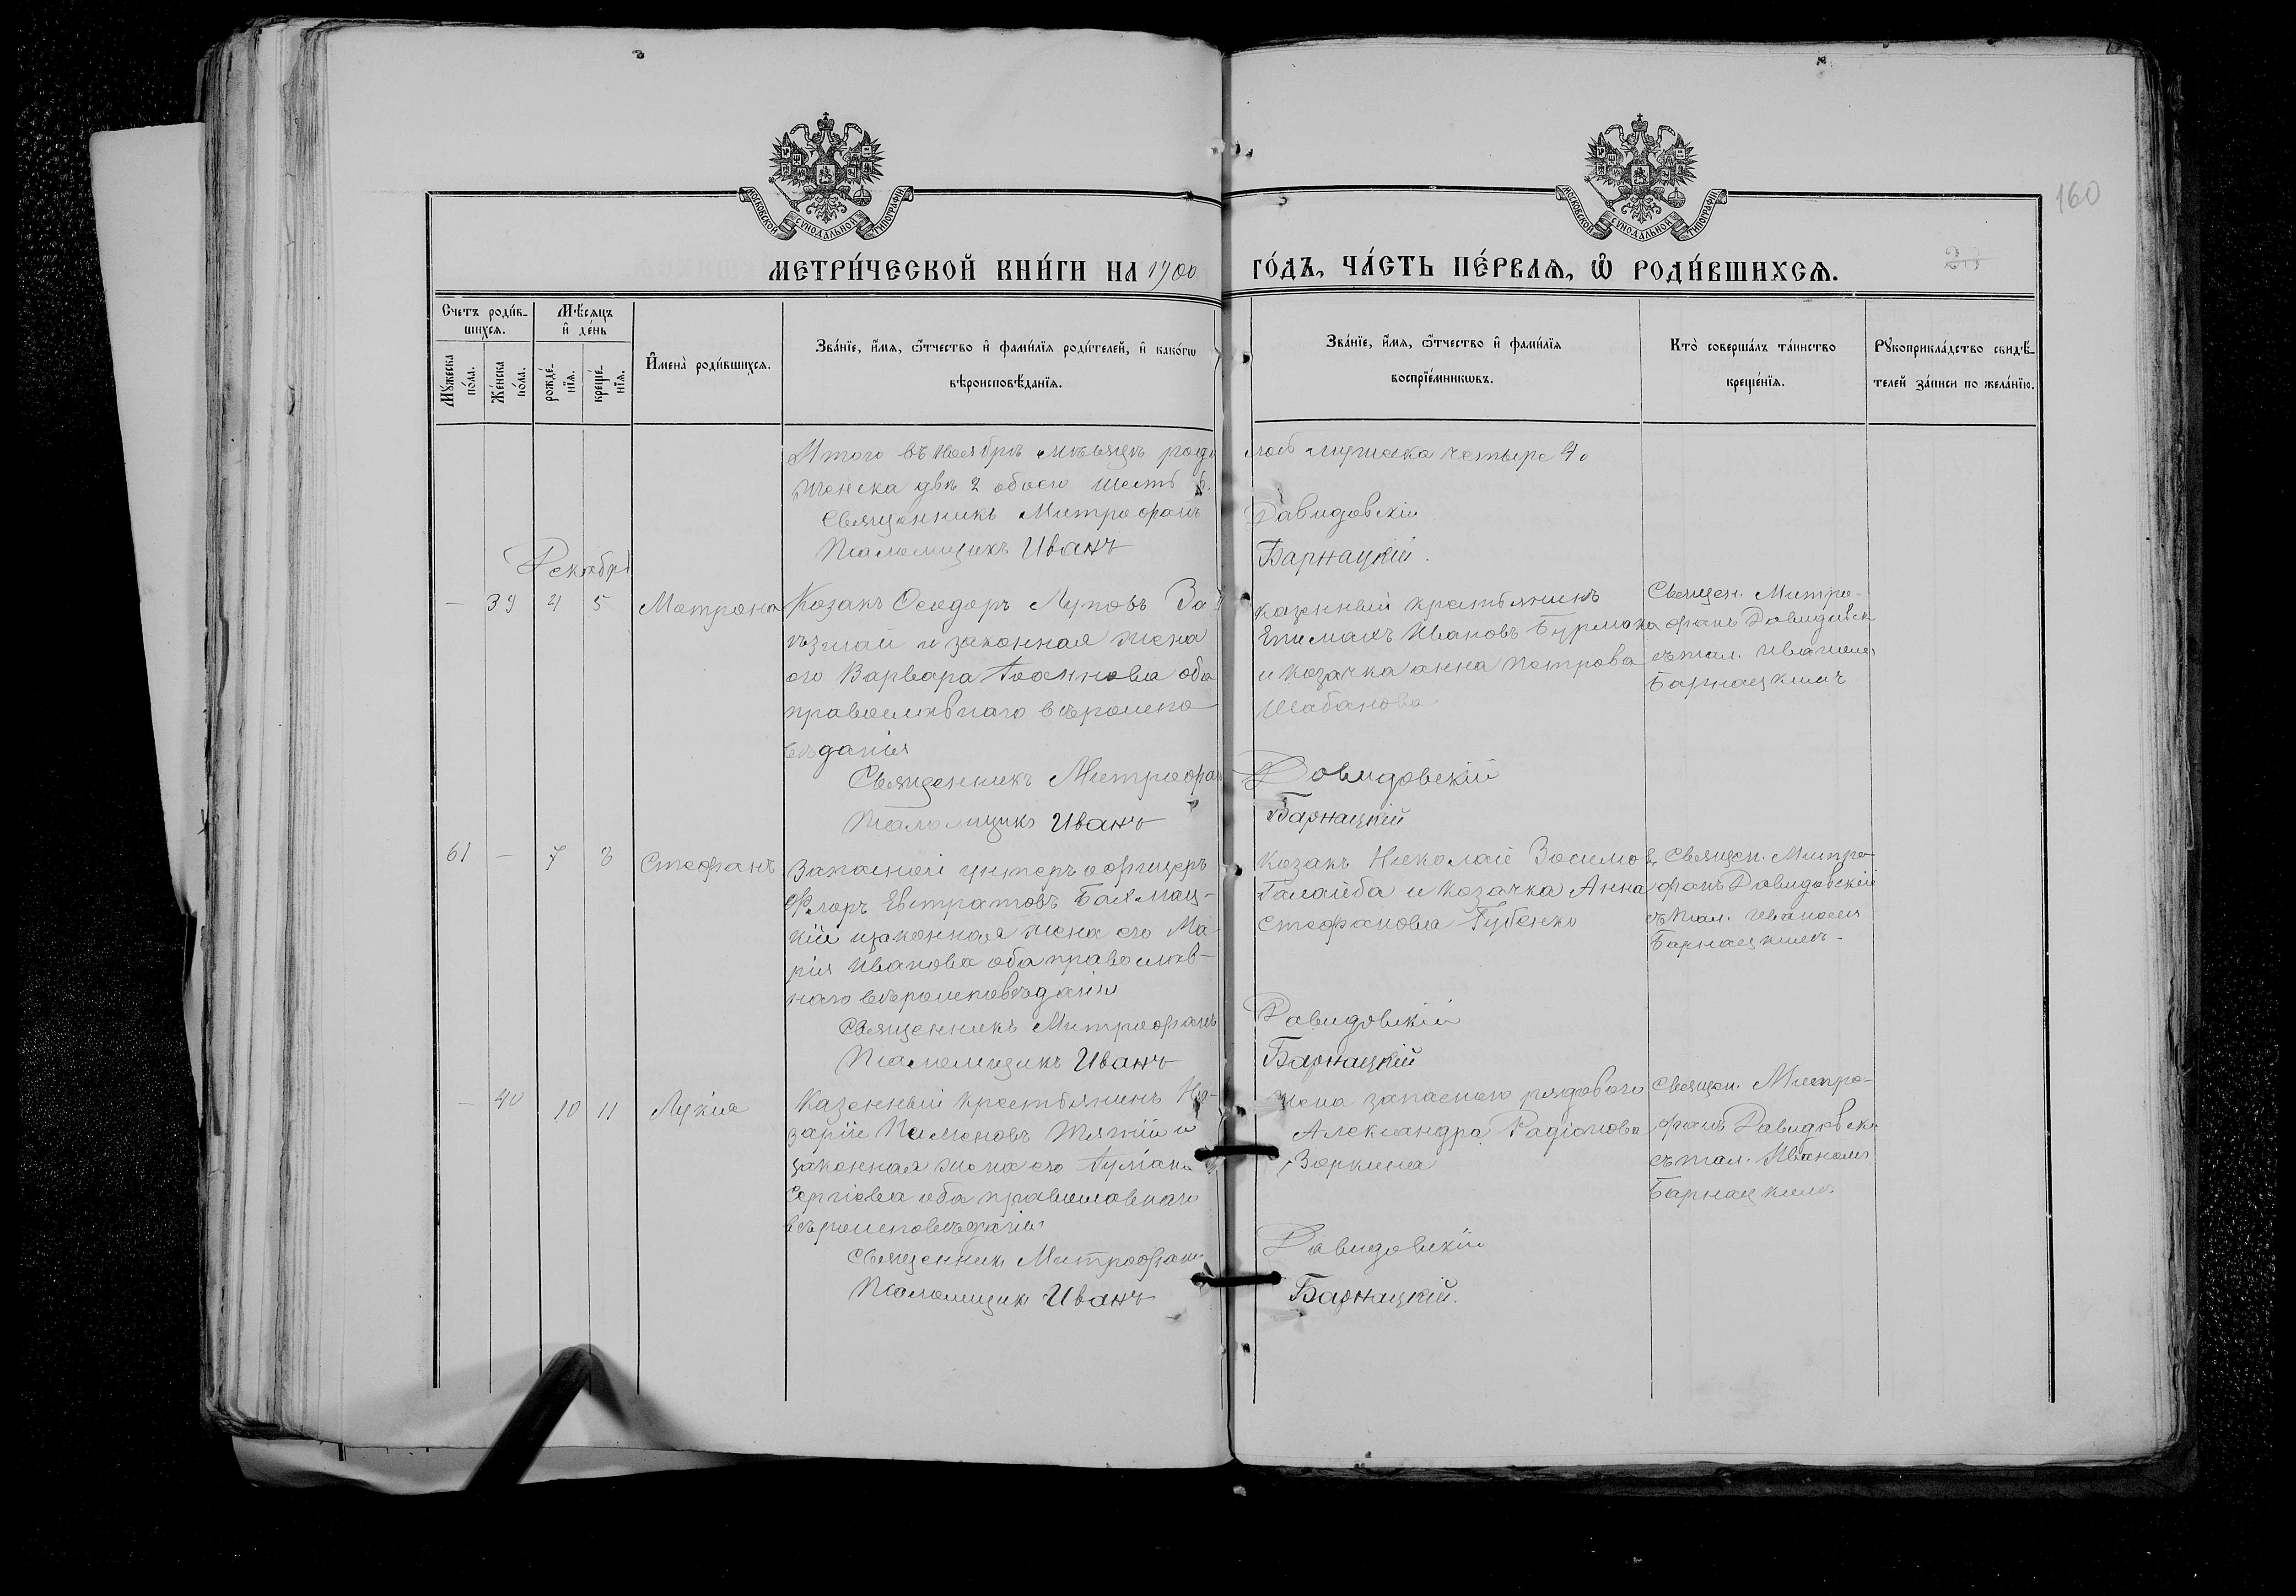 160
МОСКОВСКОЙ СУНОДАЛЬНОЙ ТИПОГРАФІИ
МОСКОВСКОЙ СУНОДАЛЬНОЙ ТИПОГРАФІИ
МЕТРИ́ЧЕСКОЙ КНИ́ГИ НА 1900 ГО́ДЪ, ЧА́СТЬ ПЕ́РВАѦ, Ѿ РОДИ́ВШИХСѦ.
Счетъ роди́в-
шихся.
Мѣсяцъ
и҆ де́нь
Мꙋжеска
по́ла.
Же́нска
по́ла.
рожде́-
нїя.
креще́-
нїя.
И҆мена̀ роди́вшихся.
Зва́нїе, и҆́мя, ѻ҆́тчество и҆ фами́лїя роди́телей, и҆ како́гѡ
вѣроисповѣ́данїя.
Зва́нїе, и҆́мя, ѻ҆́тчество и҆ фами́лїя
воспрїе́мникѡвъ.
Кто̀ соверша́лъ та́инство
креще́нїя.
Рꙋкоприкла́дство свидѣ́-
телей за́писи по жела́нїю.
Итого въ Ноябрѣ мѣсяцѣ роди лось мужеска четыре 4.
женска двѣ 2 обоего шесть 6.
Священникъ Митрофанъ Давидовскій
Псаломщикъ Иванъ Барнацкій.
Декабрь
— 39 4 5 Матрона
Козакъ Ѳеодоръ Луповъ
и законная жена
его Варвара Іоаннова оба
православнаго вѣроиспо-
вѣданія
казенный крестьянинъ
Епимахъ Ивановъ Бурмака
и козачка Анна Петрова
Шабанова
Священ. Митро-
фанъ Давидовск
съ псал. Иваномъ
Барнацкимъ
Священникъ Митрофанъ Давидовскій
Псаломщикъ Иванъ Барнацкій
61 — 7 8 Стефанъ
Запасный унтеръ офицеръ
Флоръ Евстратовъ
кій и законная жена его Ма-
рія Иванова оба православ-
наго вѣроисповѣданія
Козакъ Николай Зосимов
Галайба и козачка Анна
Стефанова Губенко
Священ. Митро-
фанъ Давидовскій
съ псал. Иваномъ
Барнацкимъ
Священникъ Митрофанъ Давидовскій
Псаломщикъ Иванъ Барнацкій
— 40 10 11 Лукія
Казенный крестьянинъ На-
зарій Пименовъ и
законная жена его
Сергіева оба православнаго
вѣроисповѣданія
жена запаснаго рядового
Александра Радіонова
Зоркина
Священ. Митро-
фанъ Давидовск
съ псал. Иваномъ
Барнацкимъ
Священникъ Митрофанъ Давидовскій
Псаломщикъ Иванъ Барнацкій.